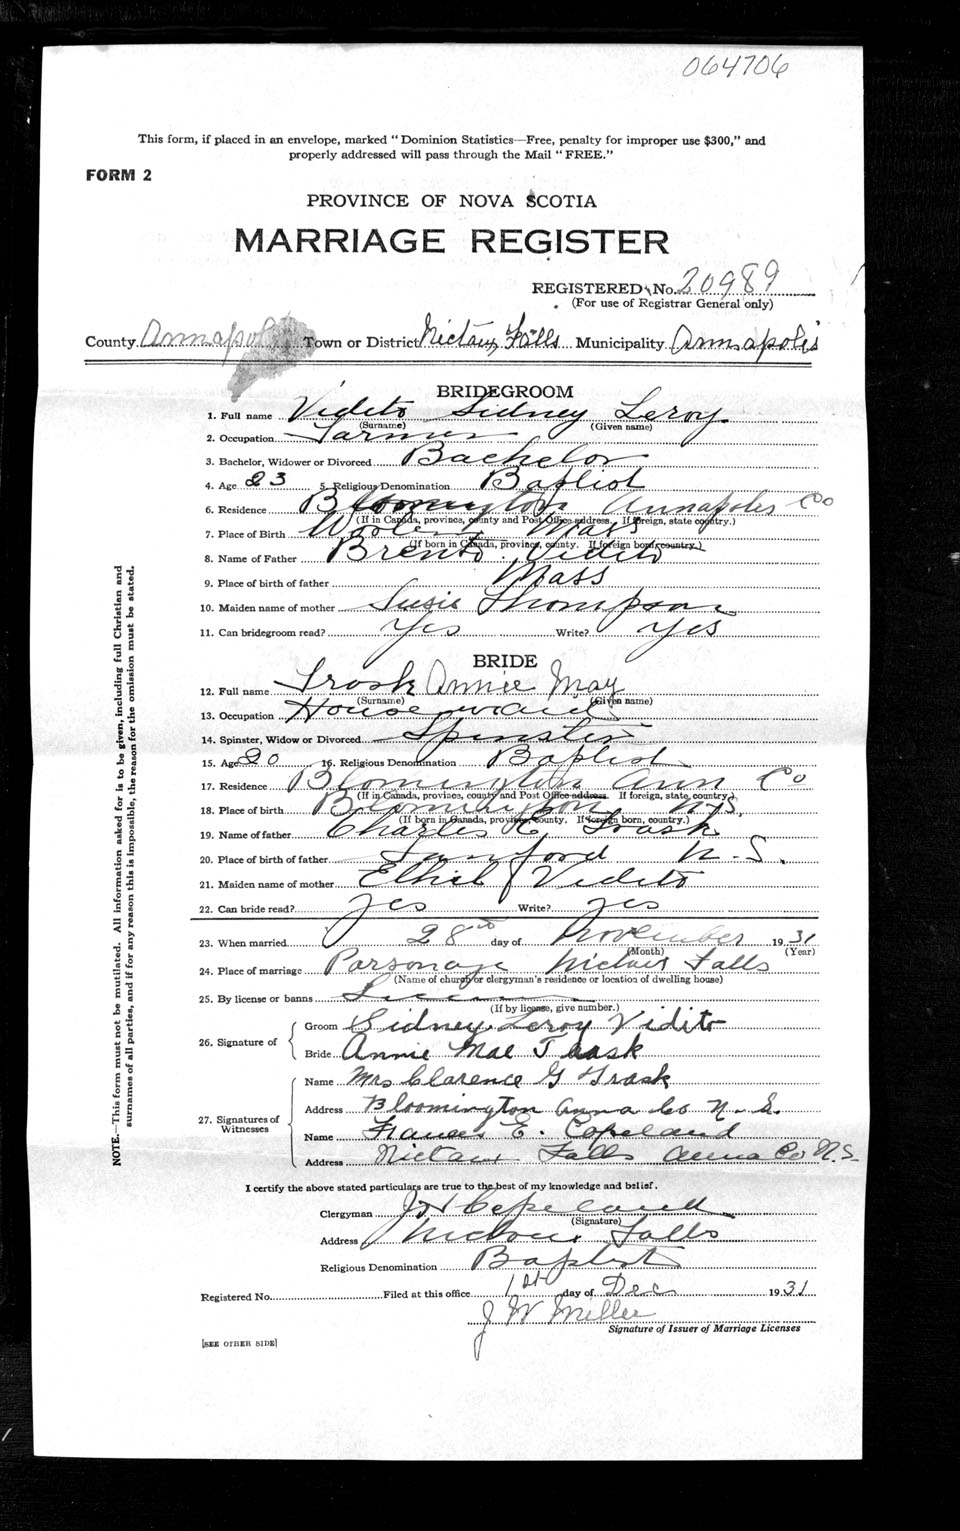 064706
This form, if placed in an envelope, marked "Dominion Statistics—Free, penalty for improper use $300," and
properly addressed will pass through the Mail "FREE."
FORM 2
PROVINCE OF NOVA SCOTIA
MARRIAGE REGISTER
REGISTERED No. 20989
(For use of Registrar General only)
County Annapolis Town or District Nictaux Falls Municipality Annapolis
BRIDEGROOM
1. Full name Vidito Sidney Leroy
(Surname) (Given name)
2. Occupation Farmer
3. Bachelor, Widower or Divorced Bachelor
4. Age 23 5. Religious Denomination Baptist
6. Residence Bloomington Annapolis Co
(If in Canada, province, county and Post Office address. If foreign, state country.)
7. Place of Birth Mass
(If born in Canada, province, county. If foreign born, country.)
8. Name of Father Brenton Vidito
9. Place of birth of father Mass
10. Maiden name of mother Susie Thompson
11. Can bridegroom read? Yes Write? Yes
BRIDE
12. Full name Trask Annie May
(Surname) (Given name)
13. Occupation Housemaid
14. Spinster, Widow or Divorced Spinster
15. Age 20 16. Religious Denomination Baptist
17. Residence Blomington Ann Co
(If in Canada, province, county and Post Office address. If foreign, state country.)
18. Place of birth Blomington N.S.
(If born in Canada, province, county. If foreign born, country.)
19. Name of father Charles Trask
20. Place of birth of father Sanford N.S.
21. Maiden name of mother Ethel Vidito
22. Can bride read? yes Write? yes
23. When married 28th day of November 1931
(Month) (Year)
24. Place of marriage Parsonage Nictaux Falls
(Name of church or clergyman's residence or location of dwelling house)
25. By license or banns License
(If by license, give number.)
26. Signature of
Groom Sidney Leroy Vidito
Bride Annie Mae Trask
27. Signatures of Witnesses
Name Mrs Clarence G Trask
Address Bloomington Anna Co N.S.
Name Frances E. Copeland
Address Nictaux Falls Anna Co N.S.
I certify the above stated particulars are true to the best of my knowledge and belief.
Clergyman Copeland
(Signature)
Address Nictaux Falls
Religious Denomination Baptist
Registered No. Filed at this office 1st day of Dec 1931
J W Miller
Signature of Issuer of Marriage Licenses
[SEE OTHER SIDE]
NOTE.—This form must not be mutilated. All information asked for is to be given, including full Christian and
surnames of all parties, and if for any reason this is impossible, the reason for the omission must be stated.